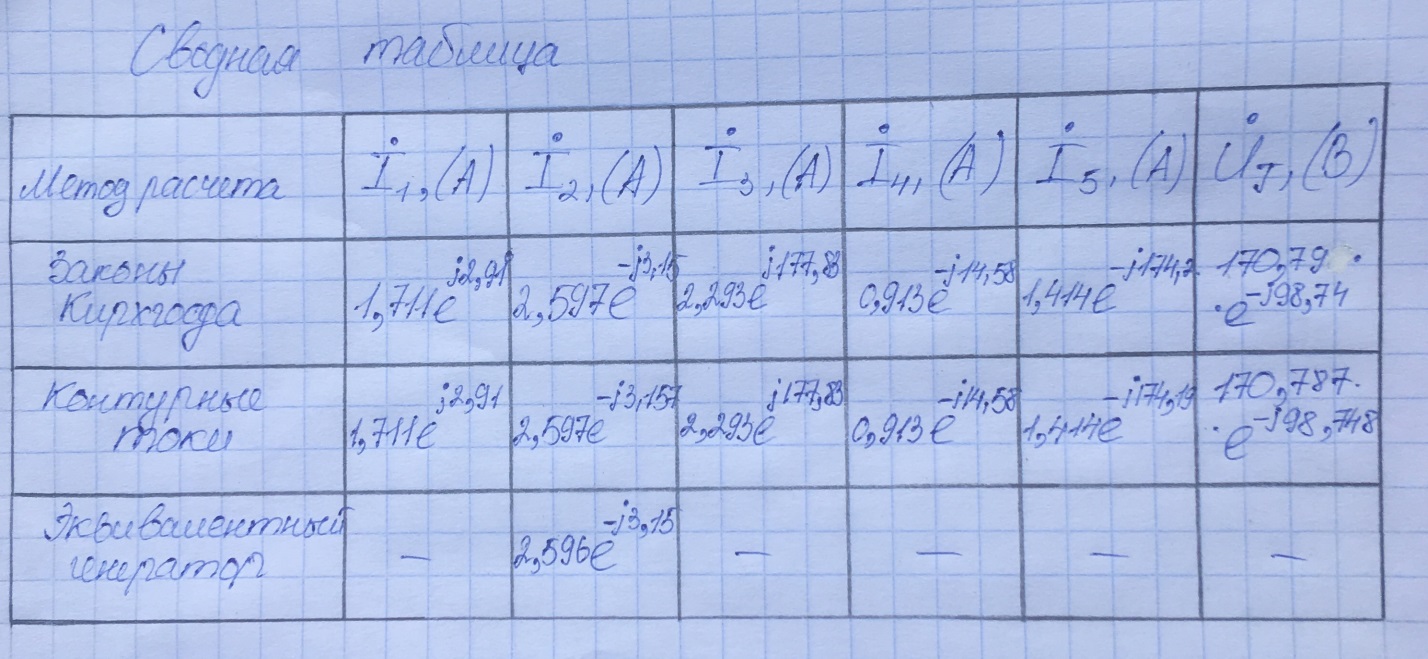 Сводная таблица
Метод расчета İ₁,(А) İ₂,(А) İ₃,(А) İ₄,(А) İ₅,(А) U̇_J,(В)
Законы Кирхгофа 1,711e^j2,91 2,597e^-j3,15 2,293e^j177,83 0,913e^-j14,58 1,414e^-j174,2 170,79· ·e^-j98,74
Контурные токи 1,711e^j2,91 2,597e^-j3,157 2,293e^j177,83 0,913e^-j14,58 1,414e^-j174,19 170,787· ·e^-j98,748
Эквивалентный генератор — 2,596e^-j3,15 — — — —